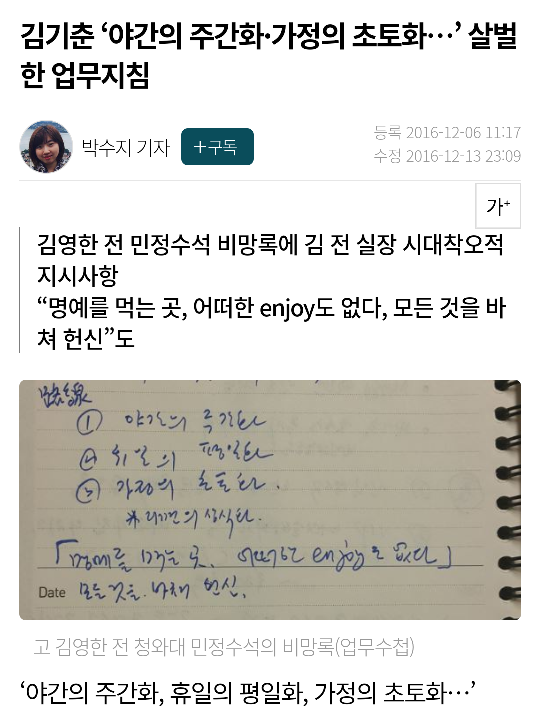 김기춘 ‘야간의 주간화·가정의 초토화…’ 살벌
한 업무지침
박수지 기자
+구독
등록 2016-12-06 11:17
수정 2016-12-13 23:09
가+
김영한 전 민정수석 비망록에 김 전 실장 시대착오적
지시사항
“명예를 먹는 곳, 어떠한 enjoy도 없다, 모든 것을 바
쳐 헌신”도
① 야간의 주간화
② 휴일의 평일화
③ 가정의 초토화.
「명예를 먹는 곳. 어떠한 enjoy도 없다」
Date 모든 것을 바쳐 헌신.
고 김영한 전 청와대 민정수석의 비망록(업무수첩)
‘야간의 주간화, 휴일의 평일화, 가정의 초토화…’